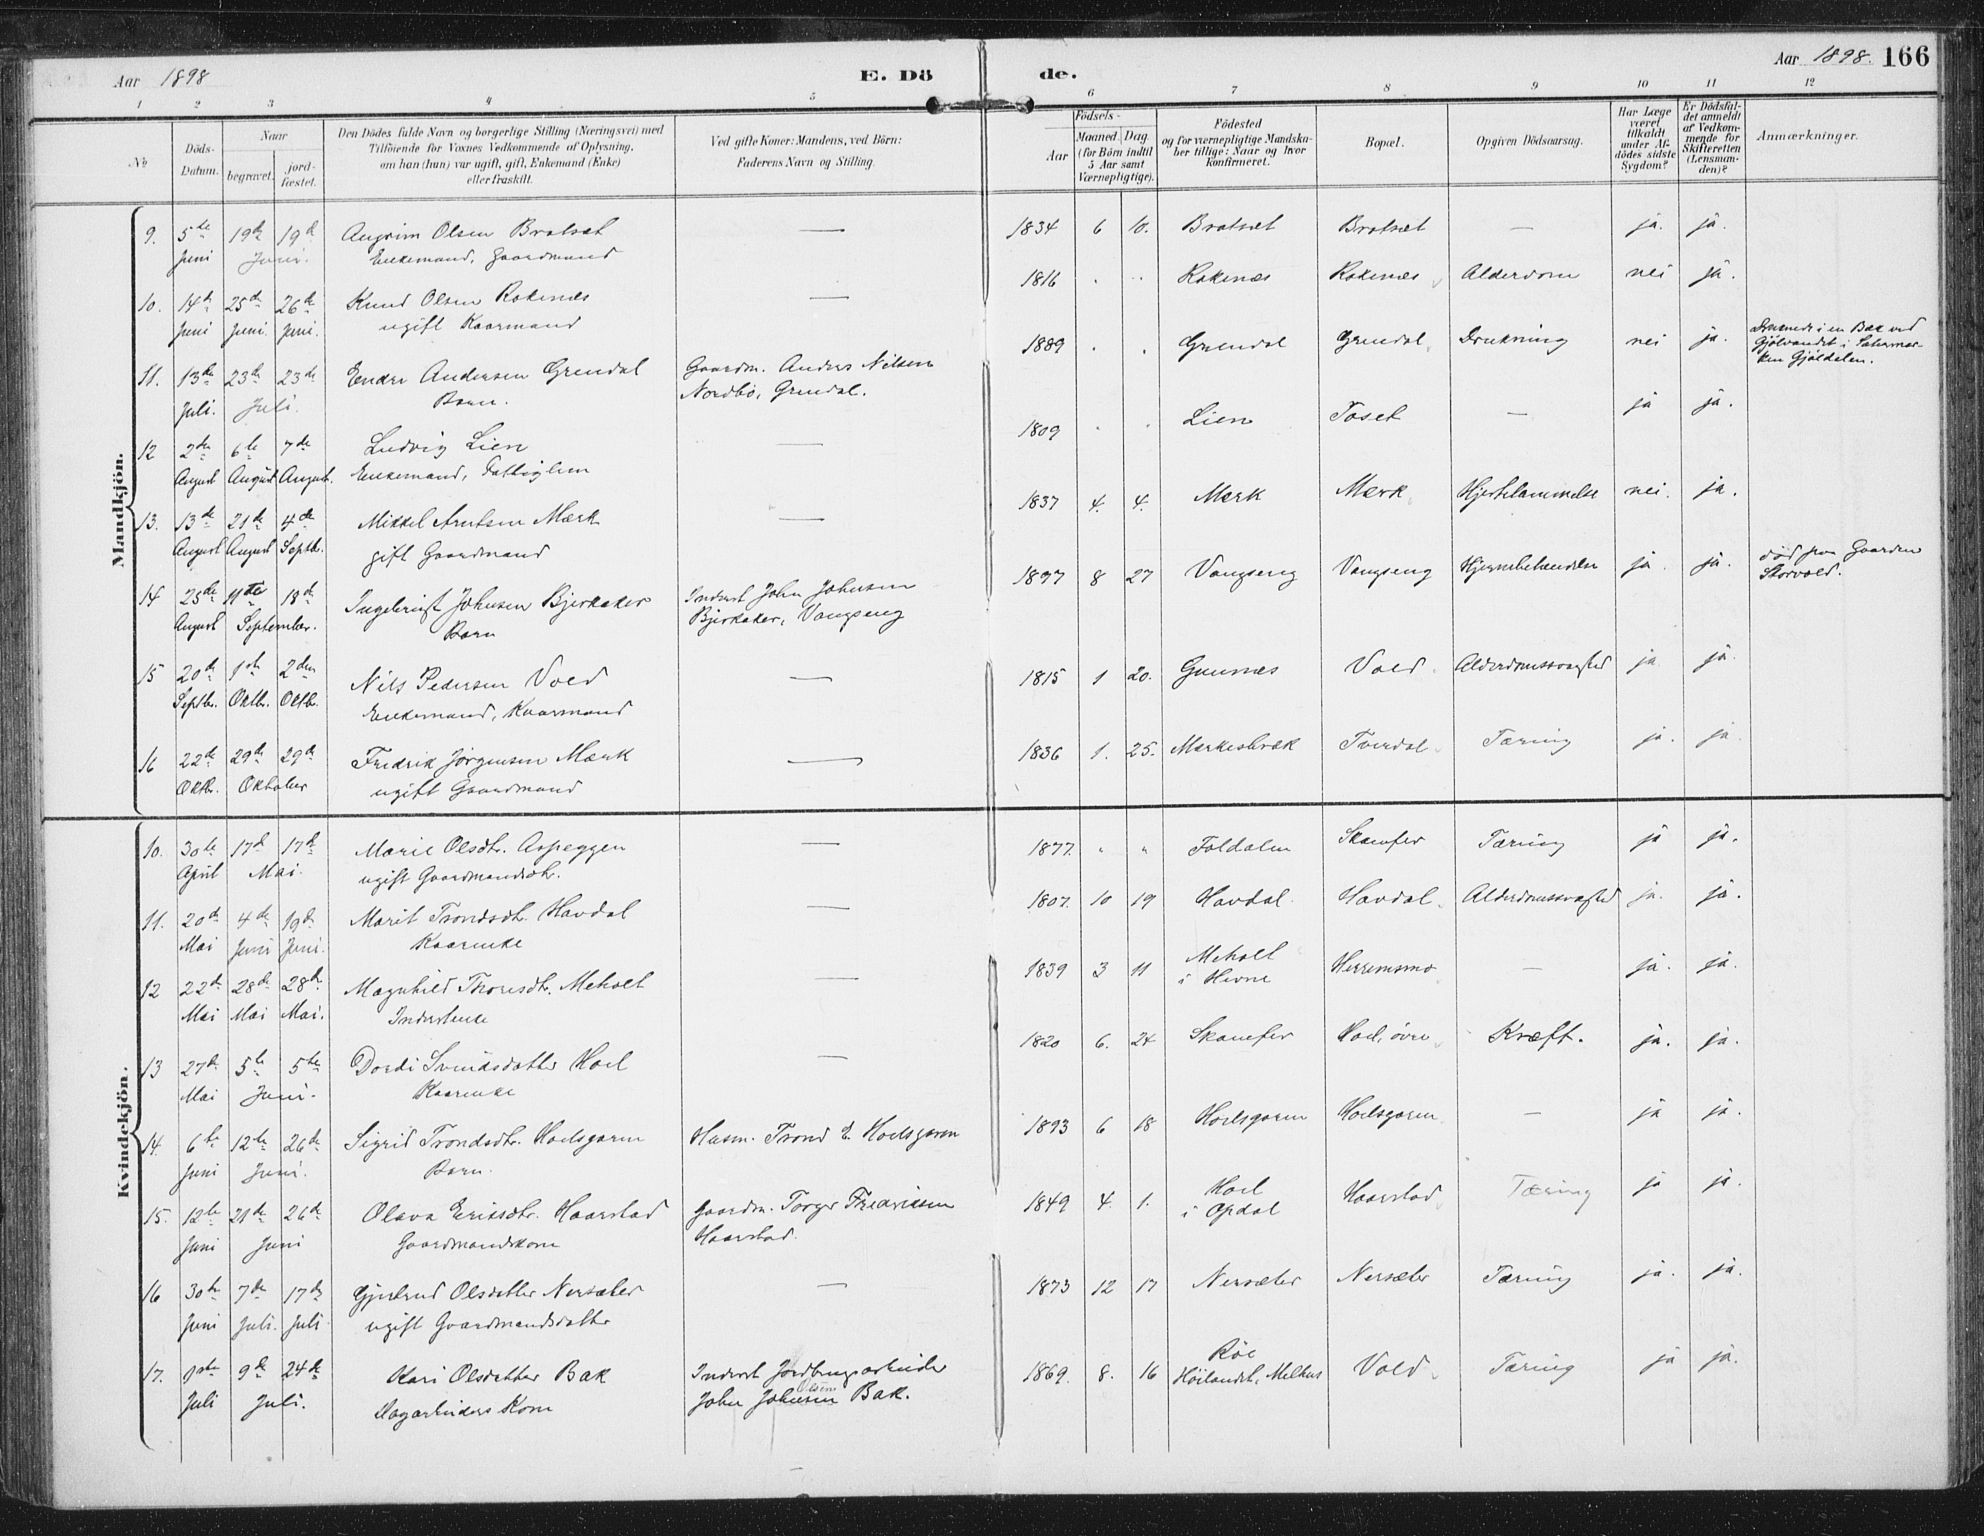 Aar 1898
E. Dö
de.
Aar 1898. 166
1 2 3 4 5 6 7 8 9 10 11 12
No
Döds-
Datum.
Naar
begravet.
jord-
fæstet.
Den Dödes fulde Navn og borgerlige Stilling (Næringsvei) med
Tilföiende for Voxnes Vedkommende af Oplysning,
om han (hun) var ugift, gift, Enkemand (Enke)
eller fraskilt.
Ved gifte Koner: Mandens, ved Börn:
Faderens Navn og Stilling.
Födsels-
Aar
Maaned. Dag.
(for Börn indtil
5 Aar samt
Værnepligtige).
Födested
og for værnepligtige Mandska-
ber tillige: Naar og hvor
konfirmeret.
Bopæl.
Opgiven Dödsaarsag.
Har Læge
været
tilkaldt
under Af-
dödes sidste
Sygdom?
Er Dödsfal-
det anmeldt
af Vedkom-
mende for
Skifteretten
(Lensman-
den)?
Anmærkninger.
Mandkjön.
9. 5te 19de 19de Angrim Olsen Bratset — 1834 6 10. Bratset Bratset — ja. ja.
Juni Juni. Enkemand, Gaardmand
10. 14de 25de 26de Knud Olsen Rokenæs — 1816 " " Rokenæs Rokenæs Alderdom nei ja.
Juni Juni. Juni. ugift Kaarmand
11. 13de 23de 23de Endre Andersen Grendal Gaardm. Anders Nilsen 1889 " " Grendal Grendal Drukning nei ja. Druknede i en Bæk ved
Juli. Juli. Barn. Nordbø, Grendal. Gjølvandet i Sætermar-
ken Gjøldalen.
12 2de 6te 7de Ludvig Lien — 1809 " " Lien Toset — ja ja.
August August August. Enkemand, Fattiglem
13. 13de 21de 4de Mikkel Arntsen Mærk — 1837 4. 4. Mærk Mærk Hjertelammelse nei. ja.
August August Septb. gift Gaardmand
14 25de 11te 18de Ingebrigt Johnsen Bjerkaker Inderst John Johnsen 1897 8 27 Vangseng Vangseng Hjernebetændelse ja. ja. død paa Gaarden
August September. Barn Bjerkaker, Vangseng Storvold.
15 20de 1ste 2den Nils Pedersen Vold — 1815 1 20. Gunnes Vold Alderdomssvaghed ja ja.
Septbr. Oktbr. Oktbr. Enkemand, Kaarmand
16 22de 29de 29de Fredrik Jørgensen Mærk — 1836 1. 25. Mærkesbræk Tverdal Tæring ja. ja.
Oktbr. Oktober ugift Gaardmand
Kvindekjön.
10. 30te 17de 17de Marie Olsdtr. Aspeggen — 1877. " " Foldalen Skamfer Tæring ja ja.
April Mai. ugift Gaardmandsdtr.
11. 20de 4de 19de Marit Trondsdtr. Havdal — 1807. 10 19 Havdal. Havdal. Alderdomssvaghed ja. ja.
Mai Juni Juni. Kaarenke
12 22de 28de 28de Magnhild Thoresdtr. Meholt — 1839 3 11 Meholt Herremsmo — ja. ja.
Mai Mai Mai. Inderstenke i Hevne
13 27de 5te 5te Dordi Svendsdatter Hoel — 1820 6. 24 Skamfer Hoel, øvre Kræft. ja. ja.
Mai Juni. Kaarenke
14. 6te 12te 26de Sigrid Trondsdtr. Hoelsgaren Husm. Trond E. Hoelsgaren 1893 6 18 Hoelsgaren Hoelsgaren — ja ja.
Juni Juni. Barn.
15. 12te 21de 26de Olava Eriksdtr. Haarstad Gaardm. Torger Fredriksen 1849 4. 1. Hoel Haarstad Tæring ja ja.
Juni Juni Gaardmandskone Haarstad. i Opdal
16 30te 7de 17de Gjertrud Olsdatter Nersæter — 1873 12 17 Nersæter Nersæter Tæring ja. ja.
Juni Juli. Juli ugift Gaardmandsdatter
17. 1ste 9de 24de Kari Olsdatter Bak Inderst Jordbrugsarbeider 1869. 8. 16 Røe Vold Tæring ja ja.
Juli Juli. Dagarbeiders Kone John Johnsen Olsen Bak. Høilandet, Melhus